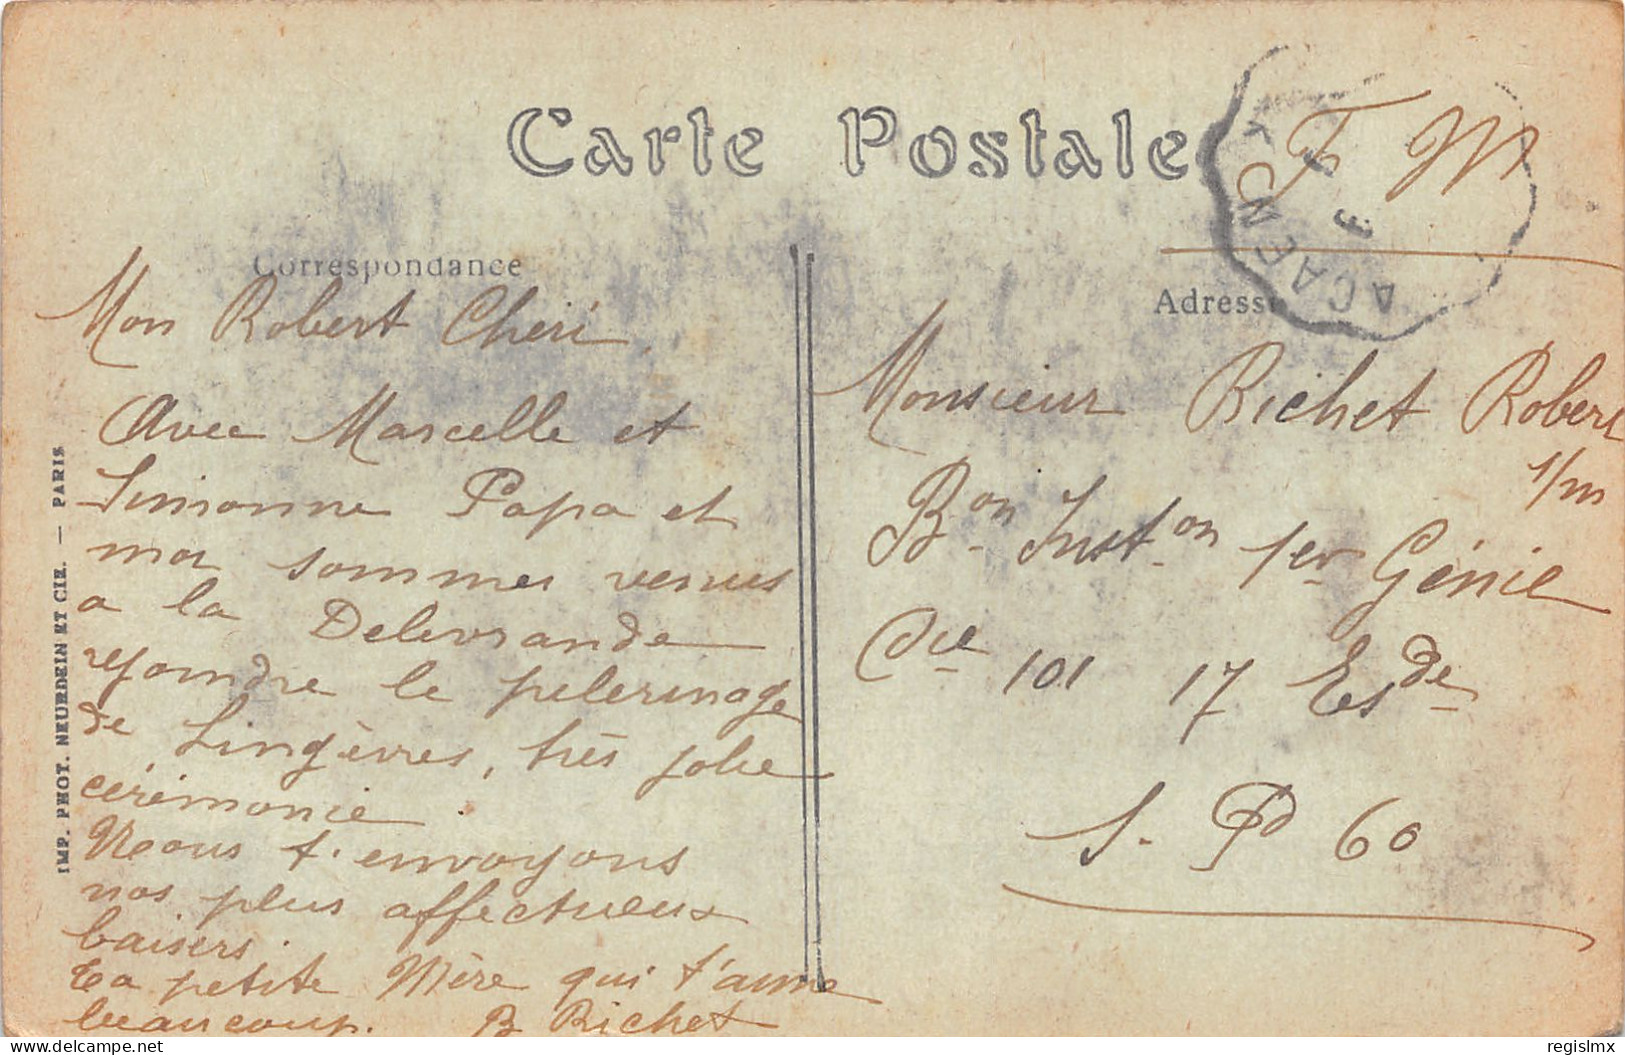 Carte Postale
F M
Correspondance
Mon Robert Chéri,
Avec Marcelle et
Simonne Papa et
moi sommes venus
a la Delivrande
rejoindre le pelerinage
de Lingèvres, très jolie
cérémonie.
Nous t'envoyons
nos plus affectueux
baisers.
Ta petite Mère qui t'aime
beaucoup. B Richet
Adresse
Monsieur Richet Robert
1/m
Bon Inston 1er Génie
Cie 101 17 Esde
S. P 60
IMP. PHOT. NEURDEIN ET CIE. — PARIS
CAEN
delcampe.net
regislmx